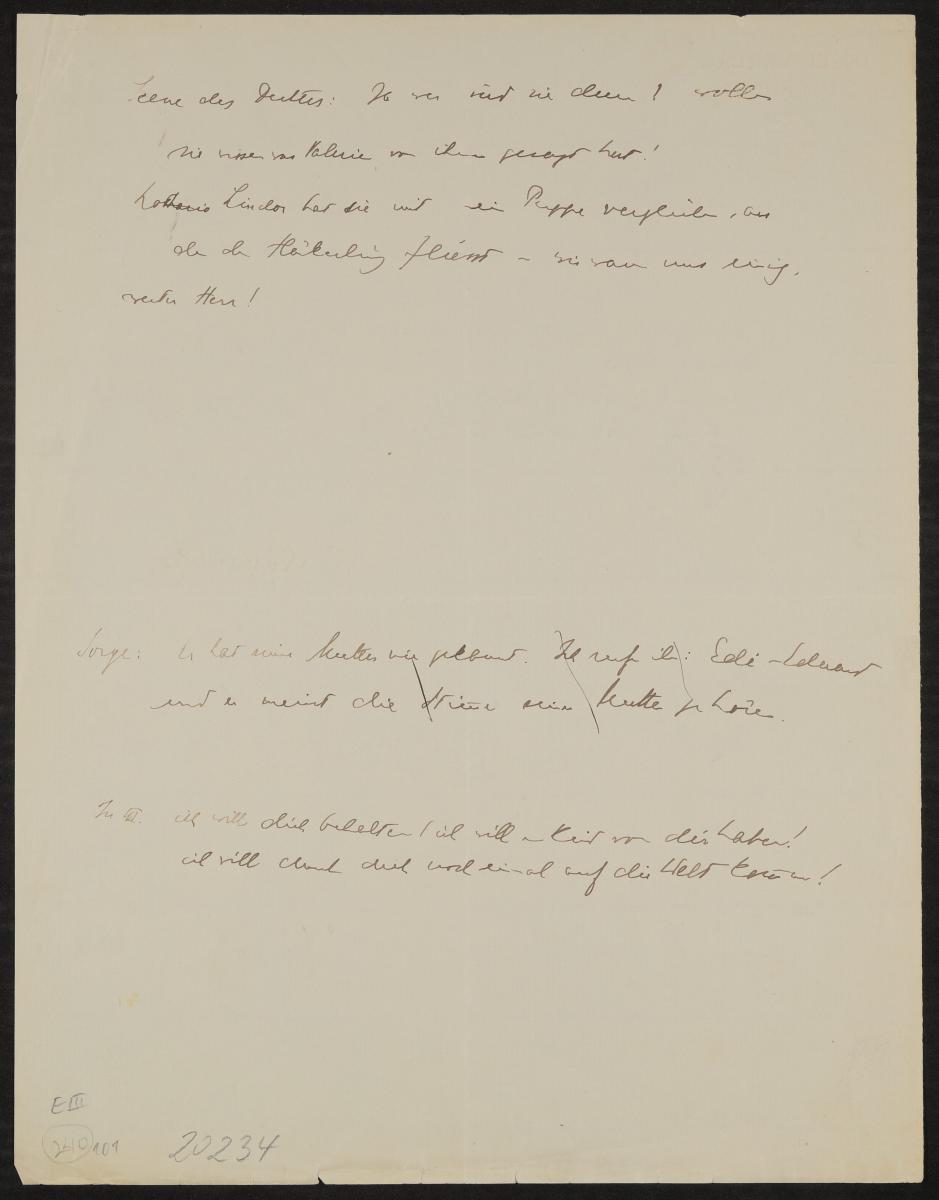 Scene des Dichters: Ja wer sind sie denn! wollen
sie wissen was Valerie von ihnen gesagt hat!
Lothario Lindor hat sie mit ein Puppe verglichen, aus
der der Häckerling fliesst – wir waren uns einig,
weiter Herr!
Sorge: Er hat seine Mutter nie gekannt. Ich rufe ihn: Edi – Eduard
und er meint die Stimme seiner Mutter zu hören.
Zu III. ich will dich behalten! ich will ein Kind von dir haben!
ich will durch dich noch einmal auf die Welt kommen!
E III
240 101
20234